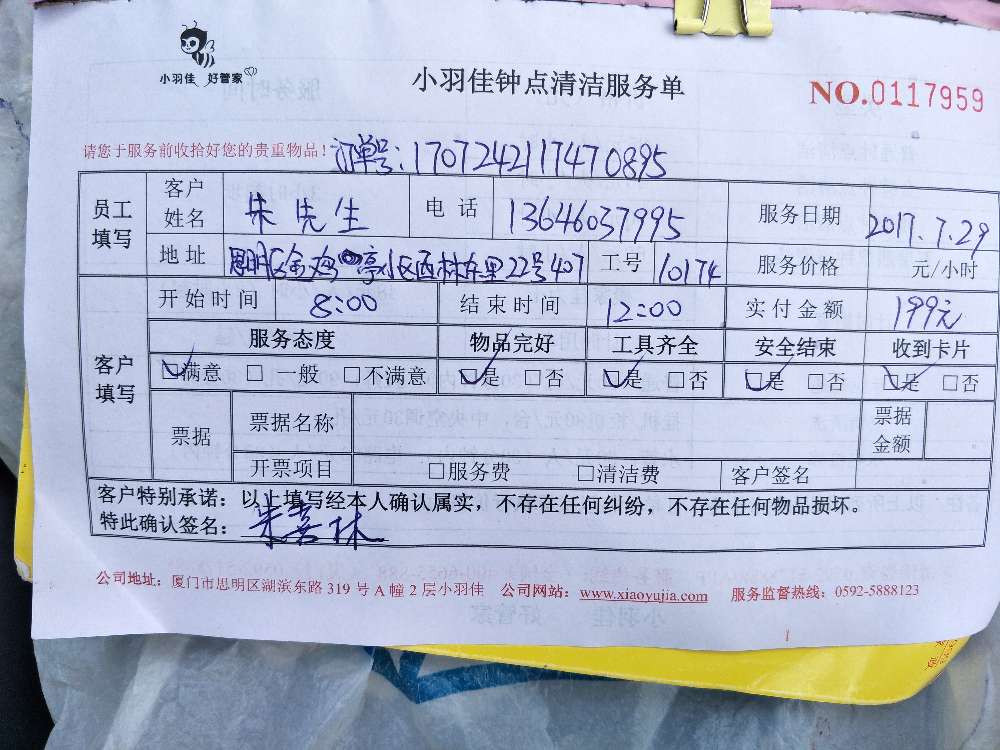 小羽佳 好管家
小羽佳钟点清洁服务单
NO.0117959
请您于服务前收拾好您的贵重物品!
订单号:1707242117470895
员工填写 客户姓名 朱先生 电话 13646037995 服务日期 2017.7.29
地址 思明区金鸡亭小区西林东里22号407 工号 10174 服务价格 元/小时
客户填写 开始时间 8:00 结束时间 12:00 实付金额 199元
服务态度 物品完好 工具齐全 安全结束 收到卡片
☑满意 □一般 □不满意 ☑是 □否 ☑是 □否 ☑是 □否 ☑是 □否
票据 票据名称 票据金额
开票项目 □服务费 □清洁费 客户签名
客户特别承诺:以上填写经本人确认属实,不存在任何纠纷,不存在任何物品损坏。
特此确认签名:朱喜林
公司地址:厦门市思明区湖滨东路319号A幢2层小羽佳 公司网站:www.xiaoyujia.com 服务监督热线:0592-5888123
1